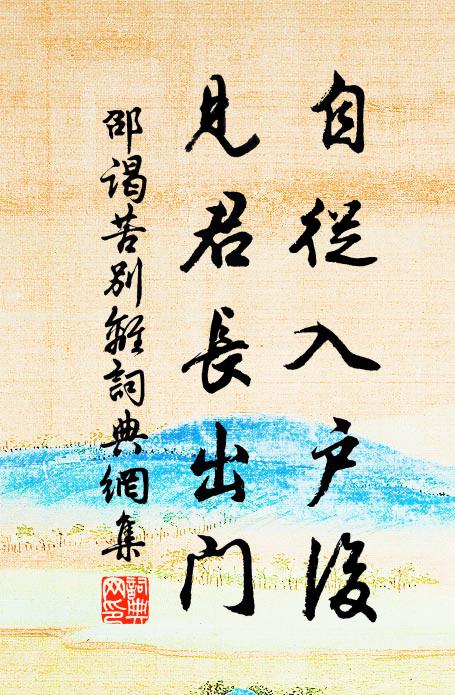 自從入户後
見君長出門
邵謁苦別離詞典網集
詞典